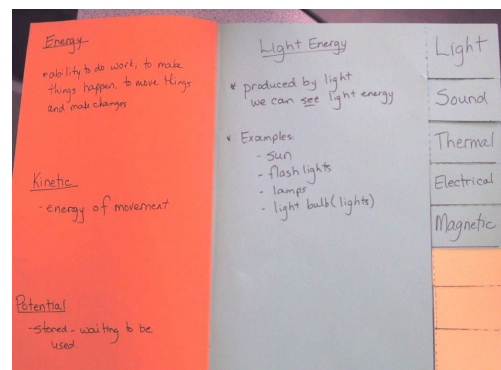 Energy
*ability to do work, to make
things happen, to move things
and make changes
Kinetic
- energy of movement
Potential
- stored - waiting to be
used
Light Energy
* produced by light
we can see light energy
* Examples:
- sun
- flash lights
- lamps
- light bulb (lights)
Light
Sound
Thermal
Electrical
Magnetic